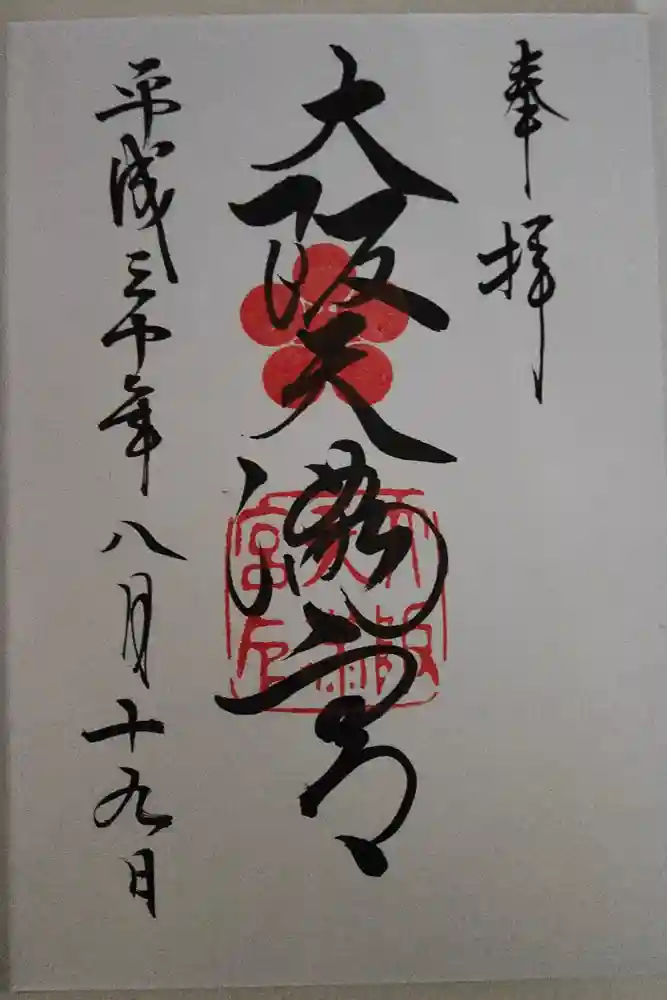 奉拝
大阪天満宮
平成三十年八月十九日